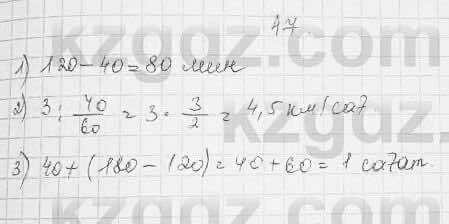 47.
1) 120 - 40 = 80 мин
2) 3 : 40/60 = 3 · 3/2 = 4,5 км/сағ
3) 40 + (180 - 120) = 40 + 60 = 1 сағат.
kzgdz.com
kzgdz.com